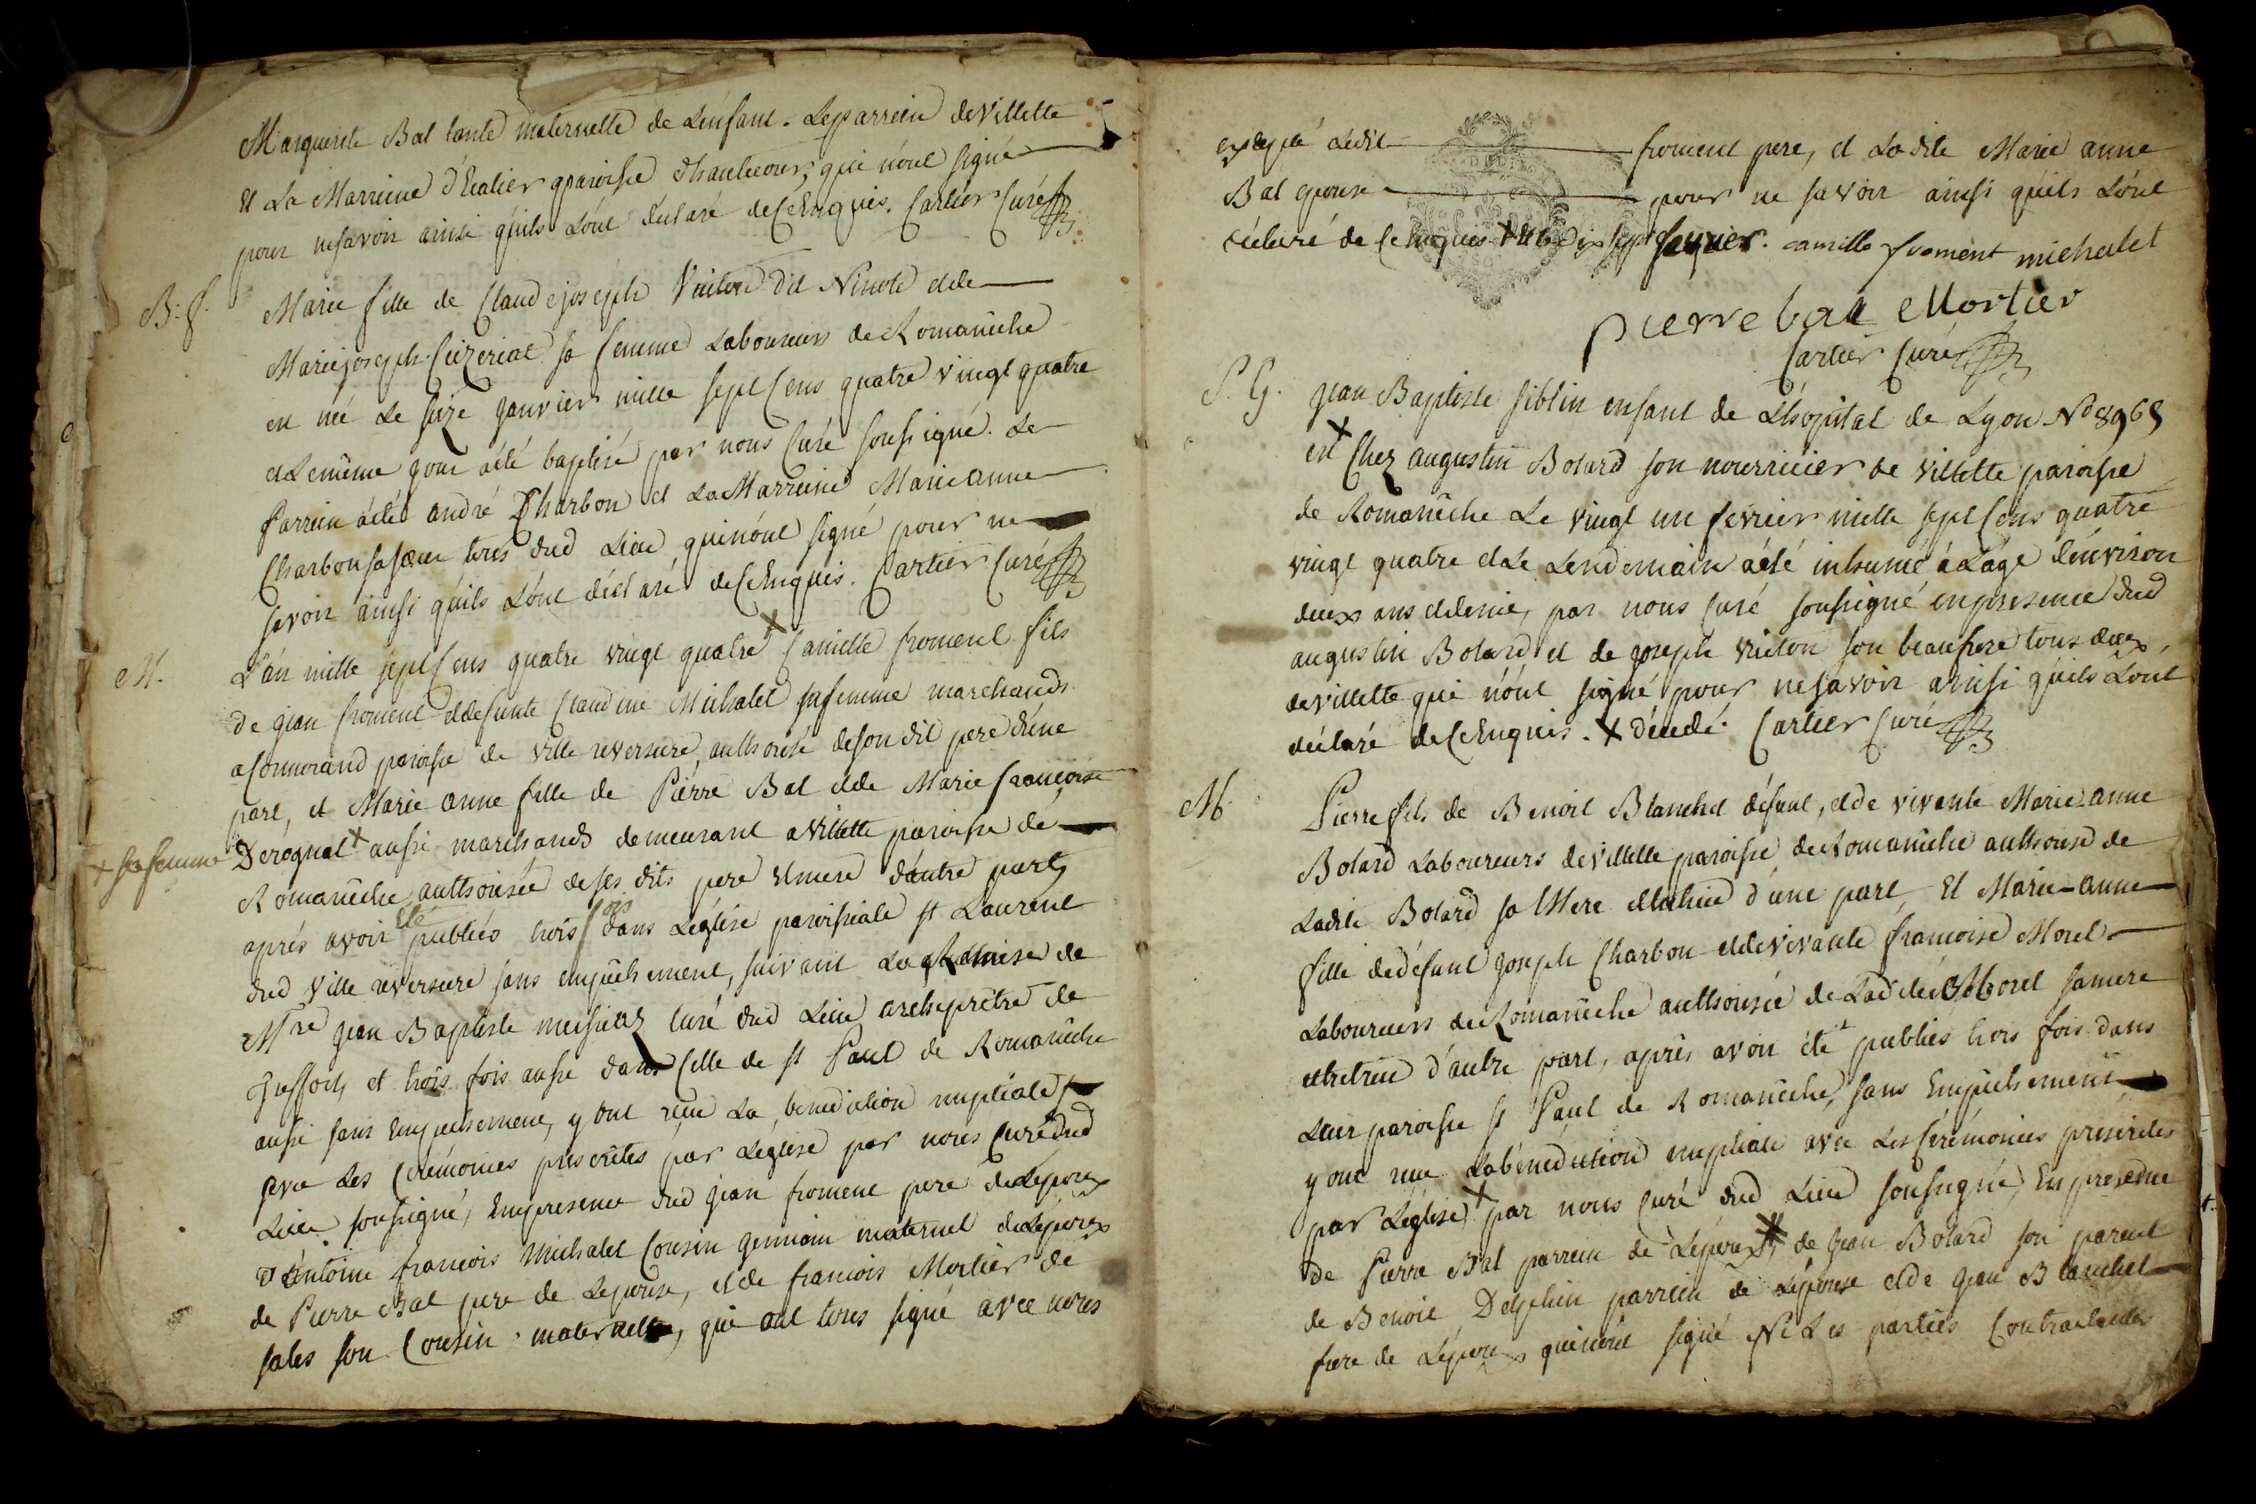 Marguerite Bal tante maternelle de L'enfant. Le parrein de Villette
et La Marreine d'Ecalier paroisse d'hautecour, qui n'ont signé
pour ne savoir ainsi qu'ils L'ont déclaré de Ce Enquis. Cartier Curé
B. f. Marie fille de Claude joseph Vuiton dit Ninot et de
Marie joseph Cuzeriat sa femme Laboureurs de Romanêche
en né Le seize janvier mille sept Cens quatre vingt quatre
et Le même jour a été baptisé par nous Curé soussigné. Le
Parrein a été andré Charbon et La Marreine Marie anne
Charbon sa sœur tous dud Lieu qui n'ont signé pour ne
savoir ainsi qu'ils L'ont déclaré de Ce Enquis. Cartier Curé
M. L'an mille sept Cens quatre vingt quatre x Camille froment fils
de jean froment et defunte Claudine Michalet sa femme marchands
a Conmorand paroisse de Ville reversure, authorisé de son dit pere d'une
part, et Marie anne fille de Pierre Bal et de Marie francoise
x sa femme Derognat x aussi marchands demeurant a Villette paroisse de
Romanêche authorisée de ses dits pere et mere d'autre part,
aprés avoir été publiés trois fois dans L'église paroissiale st Laurent
dud Ville reversure sans empêchement, suivant La Remise de
Mre jean Baptiste Curé dud Lieu archiprêtre de
et trois fois aussi dans Celle de st Paul de Romanêche
aussi sans Empechement, y ont reçu La benediction nuptiale
avec Les Cérémonies prescrites par L'eglise par nous Curé dud
Lieu soussigné, En presence dud jean froment pere de L'epoux
d'Antoine françois Michalet Cousin germain maternel de L'epoux
de Pierre Bal pere de L'epouse, et de francois Mortier de
sales son Cousin maternelle, qui ont tous signé avec nous
excepté Ledit froment pere, et Ladite Marie anne
Bal epouse pour ne savoir ainsi qu'ils L'ont
déclaré de Ce Enquis x Le dix sept fevrier. camille froment michalet
pierre bal Mortier
Cartier Curé
S. G. jean Baptiste siblin enfant de L'hopital de Lyon No 8965
est x Chez augustin Bolard son nourricier de Villette paroisse
de Romanêche Le vingt un fevrier mille sept Cens quatre
vingt quatre et Le Lendemain a été inhumé à L'age d'environ
deux ans et demie, par nous Curé soussigné en presence dud
augustin Bolard et de joseph Vuiton son beaufrere tous deux
de Villette qui n'ont signé pour ne savoir ainsi qu'ils L'ont
déclaré de Ce Enquis. x décedé. Cartier Curé
M. Pierre fils de Benoit Blanchet défunt, et de vivante Marie anne
Bolard Laboureurs de Villette paroisse de Romanêche authorisé de
Ladite Bolard sa Mere et tutrice d'une part, Et Marie anne
fille de défunt joseph Charbon et de vivante françoise Morel
Laboureurs de Romanêche authorisée de Ladite Morel sa mere
et tutrice d'autre part, aprés avoir été publiés trois fois dans
Leur paroisse st Paul de Romanêche, sans Empêchement
y ont reçu La bénediction nuptiale avec Les Cérémonies prescrites
par L'église x par nous Curé dud Lieu soussigné, En presence
de Pierre Bal parrein de L'epoux, de jean Bolard son parent
de Benoit Delphin parrein de L'épouse et de jean Blanchet
frere de L'epoux qui n'ont signé Ni Les parties Contractantes